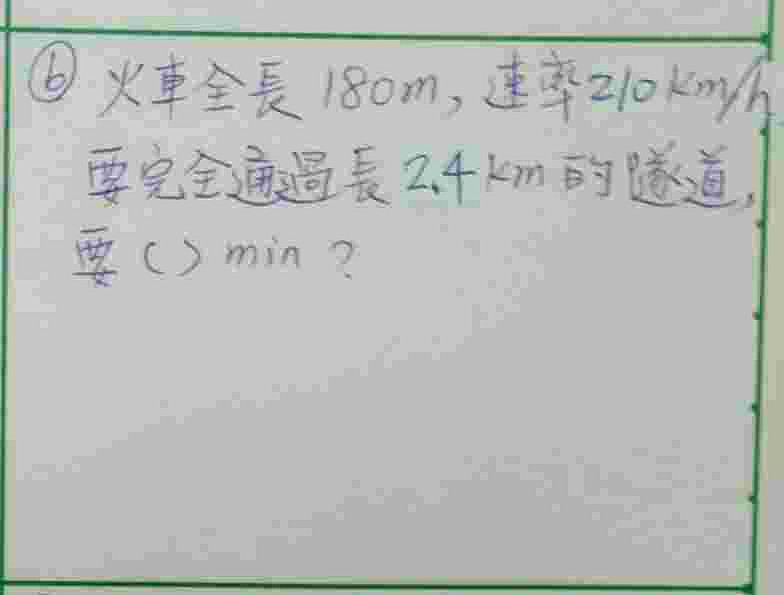 ⑥ 火車全長 180m, 速率210km/h
要完全通過長2.4km的隧道,
要()min?